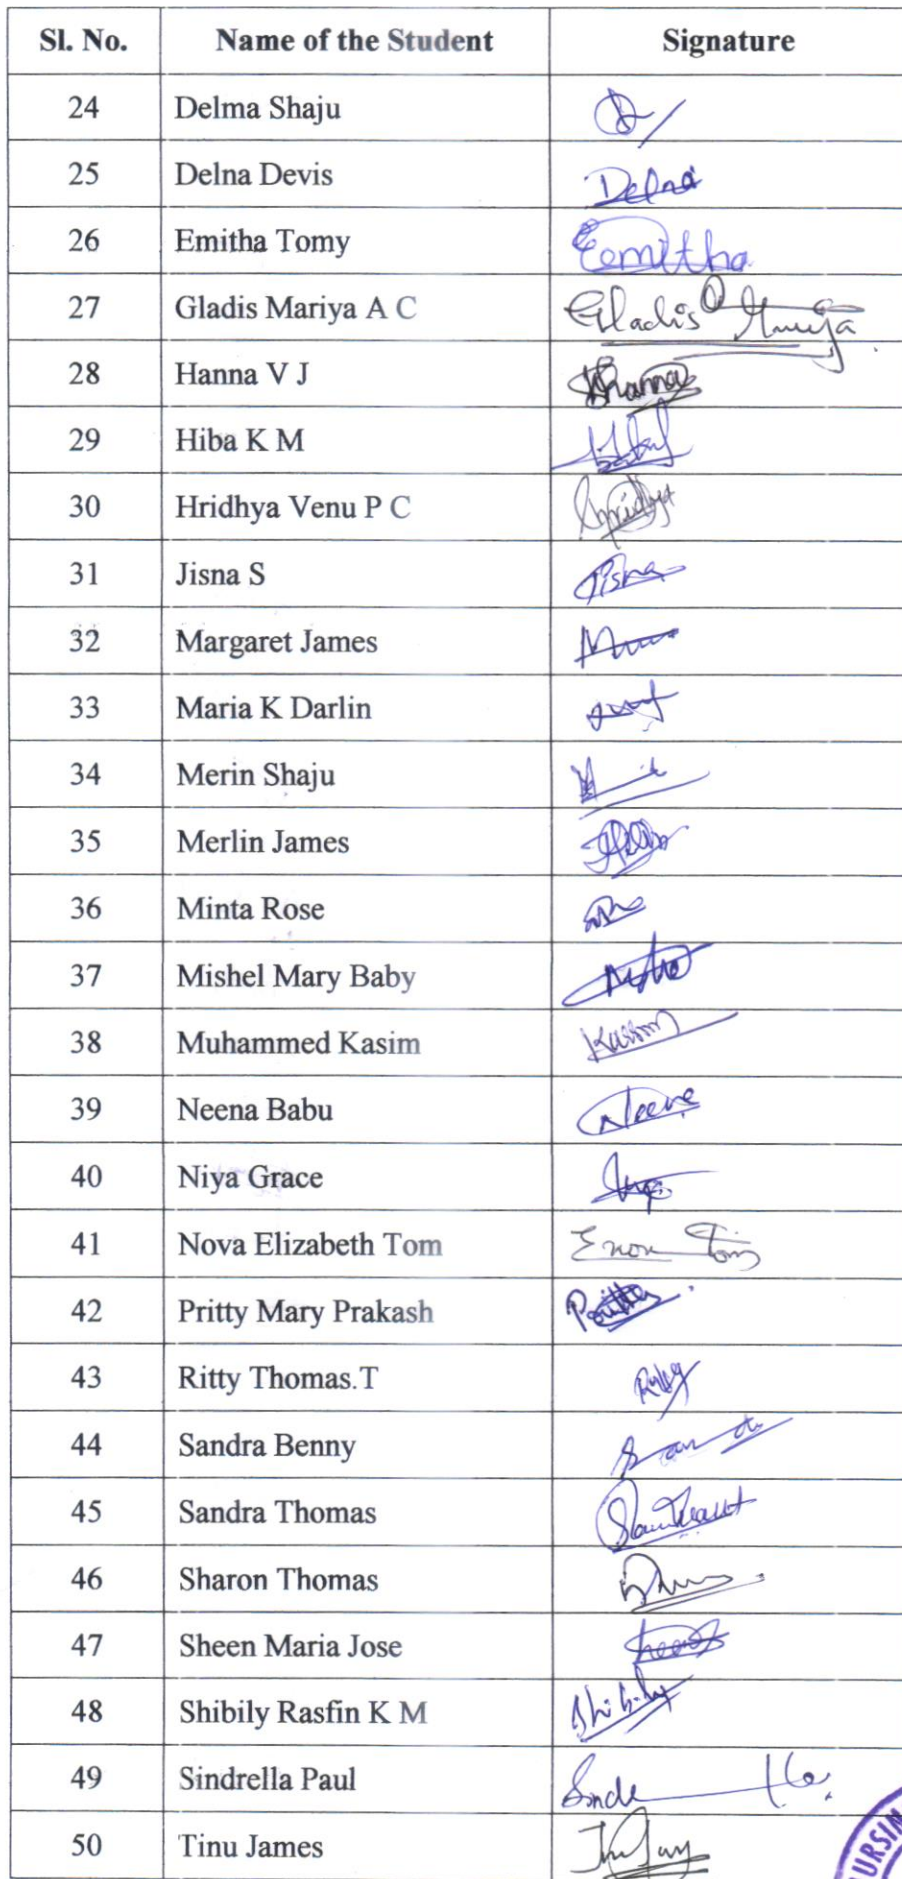 Sl. No. Name of the Student Signature
24 Delma Shaju
25 Delna Devis Delna
26 Emitha Tomy Emitha
27 Gladis Mariya A C Gladis Mariya
28 Hanna V J Hanna
29 Hiba K M
30 Hridhya Venu P C Hridhya
31 Jisna S Jisna
32 Margaret James
33 Maria K Darlin
34 Merin Shaju
35 Merlin James
36 Minta Rose
37 Mishel Mary Baby
38 Muhammed Kasim Kasim
39 Neena Babu Neena
40 Niya Grace
41 Nova Elizabeth Tom
42 Pritty Mary Prakash
43 Ritty Thomas.T
44 Sandra Benny
45 Sandra Thomas
46 Sharon Thomas
47 Sheen Maria Jose
48 Shibily Rasfin K M Shibily
49 Sindrella Paul
50 Tinu James